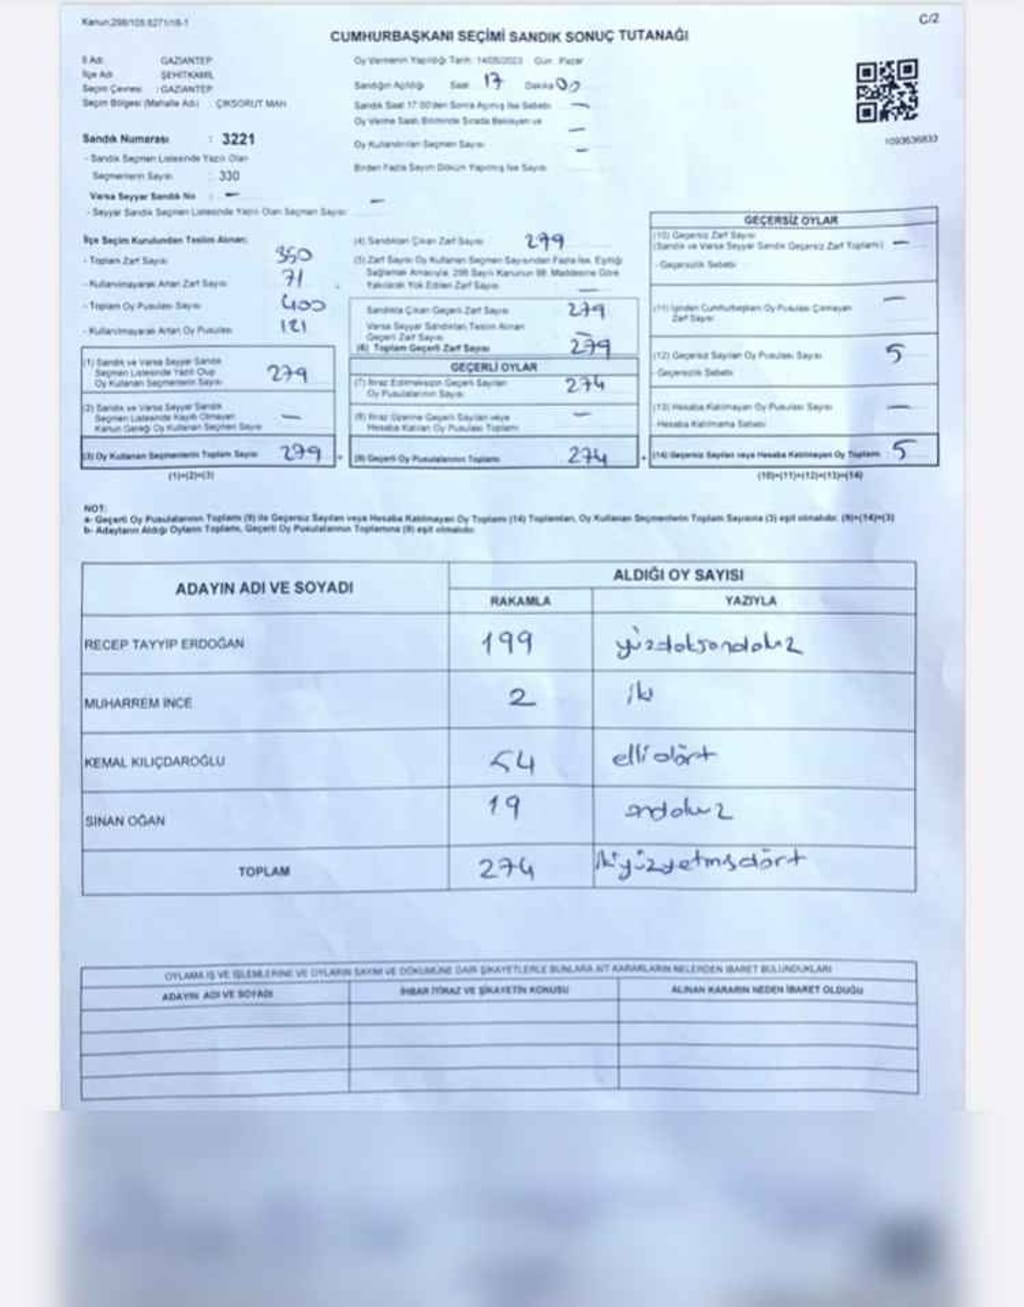 Kanun:298/105 6271/18-1
C/2
CUMHURBAŞKANI SEÇİMİ SANDIK SONUÇ TUTANAĞI
İl Adı GAZİANTEP
İlçe Adı ŞEHİTKAMİL
Seçim Çevresi : GAZİANTEP
Seçim Bölgesi (Mahalle Adı) : ÇIKSORUT MAH
Sandık Numarası : 3221
- Sandık Seçmen Listesinde Yazılı Olan
Seçmenlerin Sayısı : 330
Varsa Seyyar Sandık No : —
- Seyyar Sandık Seçmen Listesinde Yazılı Olan Seçmen Sayısı —
Oy Vermenin Yapıldığı Tarih: 14/05/2023 Gün: Pazar
Sandığın Açıldığı Saat 17 Dakika 00
Sandık Saat 17:00'den Sonra Açılmış İse Sebebi —
Oy Verme Saati Bitiminde Sırada Bekleyen ve
Oy Kullandırılan Seçmen Sayısı —
Birden Fazla Sayım Döküm Yapılmış İse Sayısı —
1093636833
İlçe Seçim Kurulundan Teslim Alınan;
- Toplam Zarf Sayısı 350
- Kullanılmayarak Artan Zarf Sayısı 71
- Toplam Oy Pusulası Sayısı 400
- Kullanılmayarak Artan Oy Pusulası 121
(1) Sandık ve Varsa Seyyar Sandık
Seçmen Listesinde Yazılı Olup
Oy Kullanan Seçmenlerin Sayısı 279
(2) Sandık ve Varsa Seyyar Sandık
Seçmen Listesinde Kayıtlı Olmayan
Kanun Gereği Oy Kullanan Seçmen Sayısı —
(3) Oy Kullanan Seçmenlerin Toplam Sayısı 279
(1)+(2)=(3)
(4) Sandıktan Çıkan Zarf Sayısı 279
(5) Zarf Sayısı Oy Kullanan Seçmen Sayısından Fazla İse, Eşitliği
Sağlamak Amacıyla; 298 Sayılı Kanunun 98. Maddesine Göre
Yakılarak Yok Edilen Zarf Sayısı —
Sandıkta Çıkan Geçerli Zarf Sayısı 279
Varsa Seyyar Sandıktan Teslim Alınan
Geçerli Zarf Sayısı —
(6) Toplam Geçerli Zarf Sayısı 279
GEÇERLİ OYLAR
(7) İtiraz Edilmeksizin Geçerli Sayılan
Oy Pusulalarının Sayısı 274
(8) İtiraz Üzerine Geçerli Sayılan veya
Hesaba Katılan Oy Pusulası Toplamı —
(9) Geçerli Oy Pusulalarının Toplamı 274
GEÇERSİZ OYLAR
(10) Geçersiz Zarf Sayısı
(Sandık ve Varsa Seyyar Sandık Geçersiz Zarf Toplamı) —
- Geçersizlik Sebebi
(11) İçinden Cumhurbaşkanı Oy Pusulası Çıkmayan
Zarf Sayısı —
(12) Geçersiz Sayılan Oy Pusulası Sayısı 5
- Geçersizlik Sebebi
(13) Hesaba Katılmayan Oy Pusulası Sayısı —
- Hesaba Katılmama Sebebi
(14) Geçersiz Sayılan veya Hesaba Katılmayan Oy Toplamı 5
(10)+(11)+(12)+(13)=(14)
NOT:
a- Geçerli Oy Pusulalarının Toplamı (9) ile Geçersiz Sayılan veya Hesaba Katılmayan Oy Toplamı (14) Toplamları, Oy Kullanan Seçmenlerin Toplam Sayısına (3) eşit olmalıdır. (9)+(14)=(3)
b- Adayların Aldığı Oyların Toplamı, Geçerli Oy Pusulalarının Toplamına (9) eşit olmalıdır.
ADAYIN ADI VE SOYADI
ALDIĞI OY SAYISI
RAKAMLA YAZIYLA
RECEP TAYYİP ERDOĞAN 199 yüzdoksandokuz
MUHARREM İNCE 2 iki
KEMAL KILIÇDAROĞLU 54 ellidört
SİNAN OĞAN 19 ondokuz
TOPLAM 274 ikiyüzyetmişdört
OYLAMA İŞ VE İŞLEMLERİNE VE OYLARIN SAYIM VE DÖKÜMÜNE DAİR ŞİKAYETLERLE BUNLARA AİT KARARLARIN NELERDEN İBARET BULUNDUKLARI
ADAYIN ADI VE SOYADI İHBAR İTİRAZ VE ŞİKAYETİN KONUSU ALINAN KARARIN NEDEN İBARET OLDUĞU